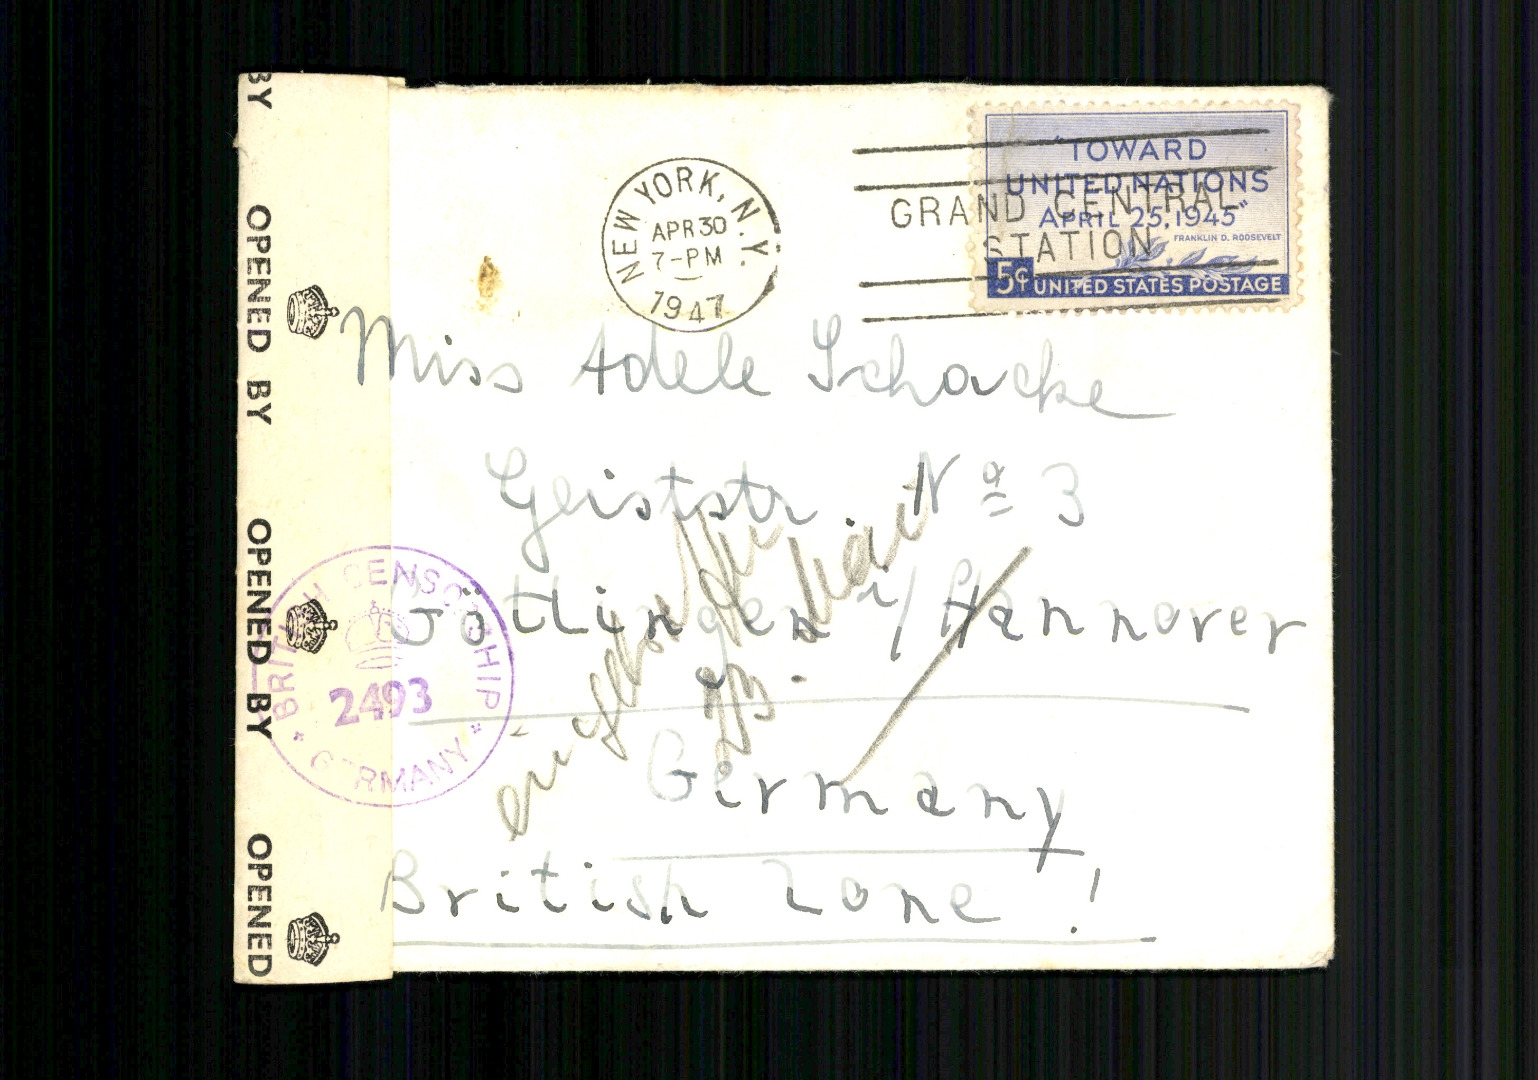 BY
OPENED BY
OPENED BY
OPENED
NEW YORK, N.Y.
APR 30
7-PM
1947
GRAND CENTRAL
STATION
"TOWARD
UNITED NATIONS
APRIL 25, 1945"
FRANKLIN D. ROOSEVELT
5¢ UNITED STATES POSTAGE
Miss Adele Schacke
Geiststr. Nº 3
Göttingen i/ Hannover
Germany
British Zone!
BRITISH CENSORSHIP
2493
* GERMANY *